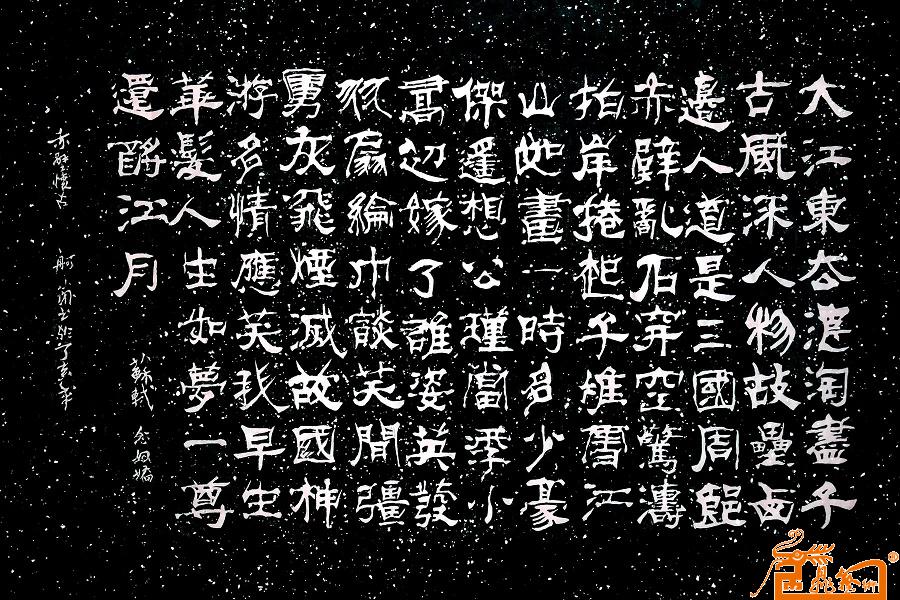 大江東去浪淘盡千
古風流人物故壘西
邊人道是三國周郎
赤壁亂石穿空驚濤
拍岸捲起千堆雪江
山如畫一時多少豪
傑遙想公瑾當年小
喬初嫁了雄姿英發
羽扇綸巾談笑間彊
虜灰飛煙滅故國神
游多情應笑我早生
華髮人生如夢一尊
還酹江月
蘇軾 念奴嬌
赤壁懷古 书於丁亥年